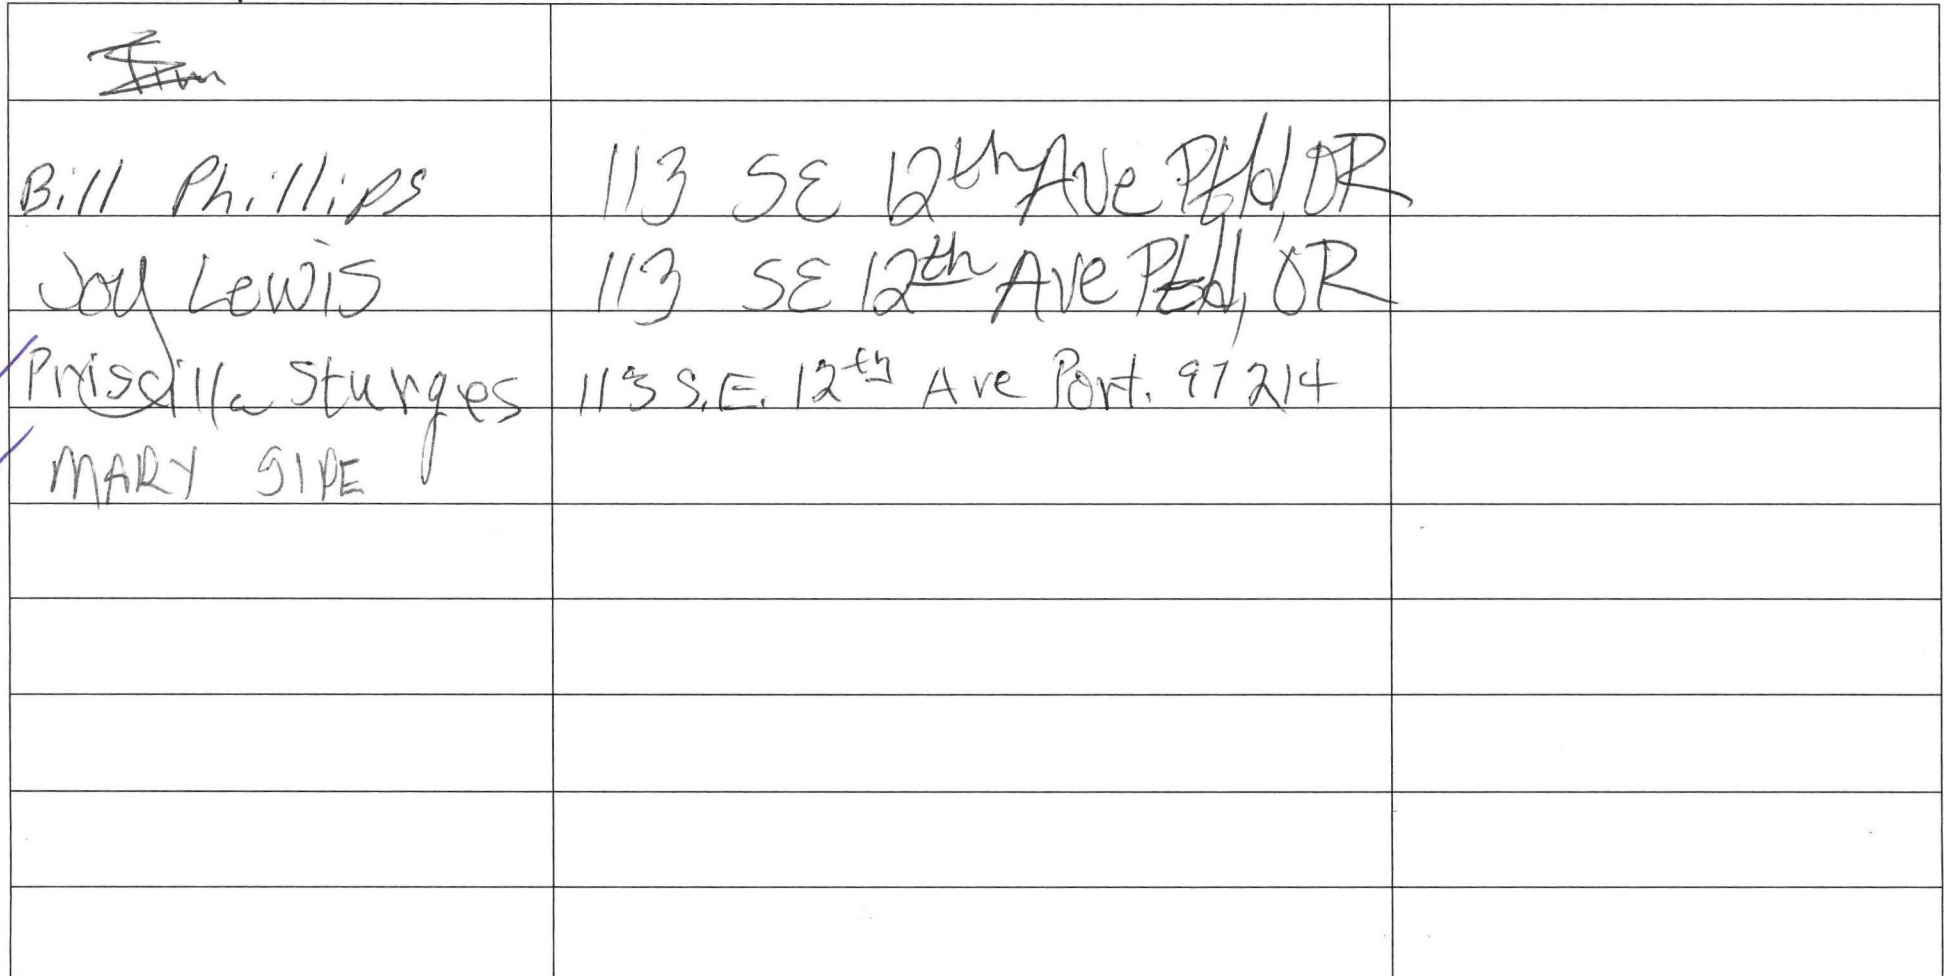 Bill Phillips 113 SE 12th Ave Ptld, OR
Joy Lewis 113 SE 12th Ave Ptld, OR
Priscilla Sturges 113 S.E. 12th Ave Port. 97214
MARY SIPE